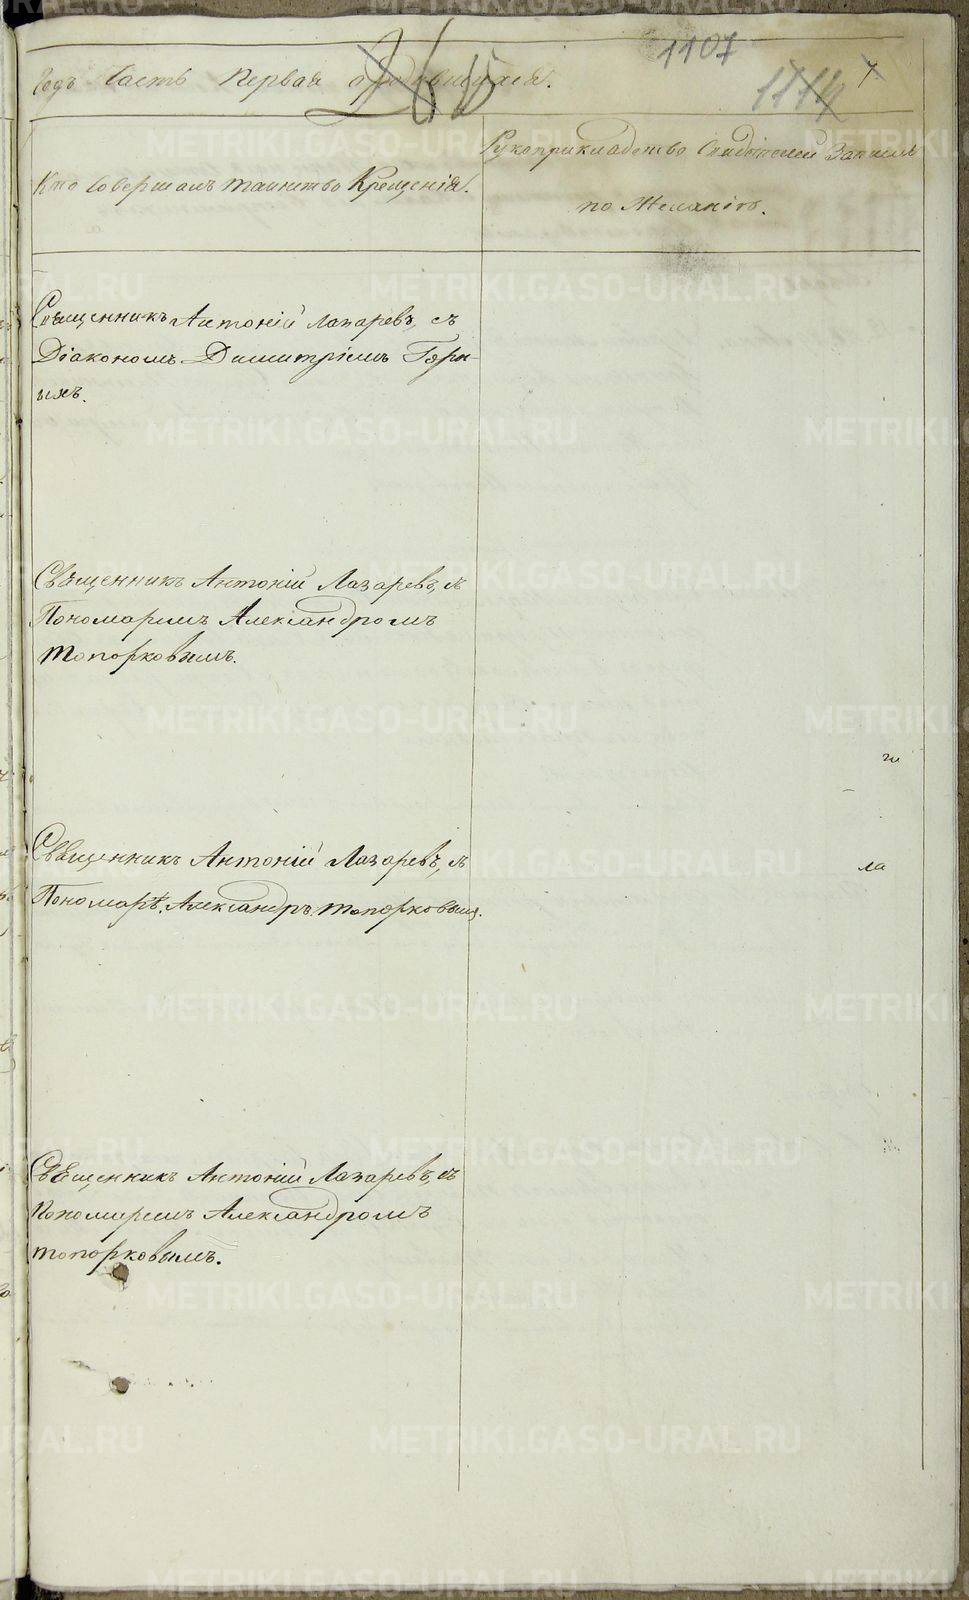 1107
Годъ Часть Первая о родившихся.
265
1114
7
Кто Совершалъ таинство Крещенія.
Рукоприкладство Свидѣтелей Записи
по Желанію.
Священникъ Антоній Лазаревъ, съ
Діакономъ Димитріемъ Горн-
ыхъ.
Священникъ Антоній Лазаревъ, съ
Пономаремъ Александромъ
Топорковымъ.
Священникъ Антоній Лазаревъ, съ
Пономарѣ. Александръ. Топорковым.
Священникъ Антоній Лазаревъ, съ
Пономаремъ Александромъ
топорковымъ.
ла
METRIKI.GASO-URAL.RU